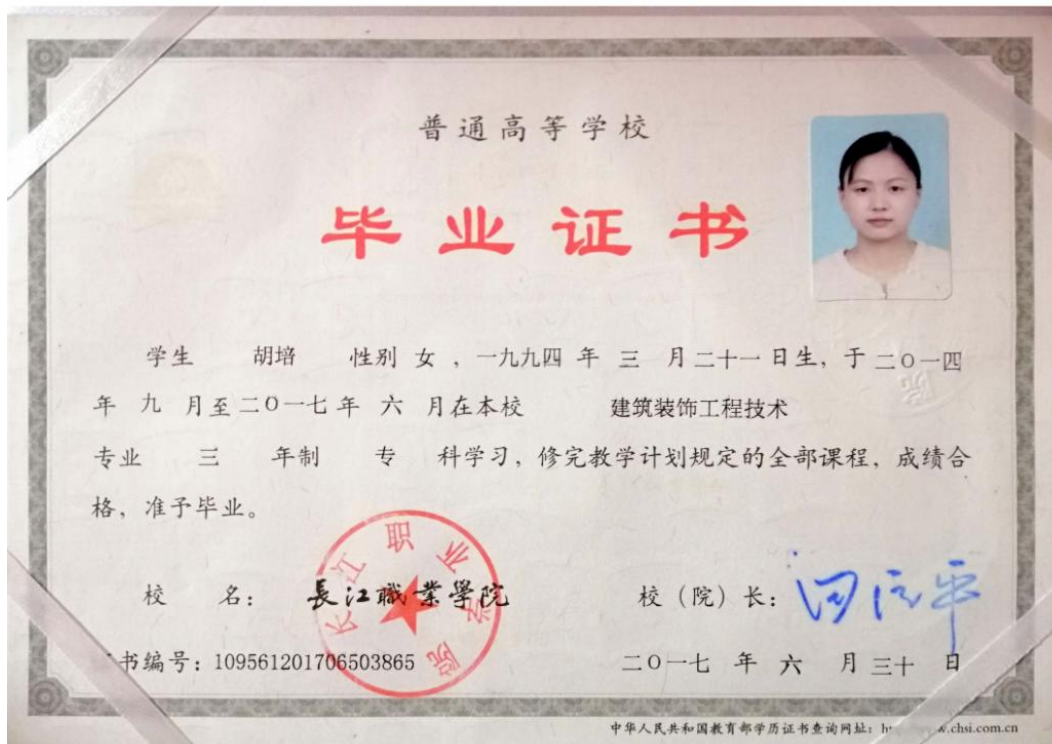 普通高等学校
毕业证书
学生 胡培 性别 女 ，一九九四 年 三 月二十一日生，于二〇一四
年 九 月至二〇一七年 六 月在本校 建筑装饰工程技术
专业 三 年制 专 科学习，修完教学计划规定的全部课程，成绩合
格，准予毕业。
校 名： 長江職業學院
长江职业学院
校（院）长：
书编号：109561201706503865
二〇一七 年 六 月 三十 日
中华人民共和国教育部学历证书查询网址：
.chsi.com.cn